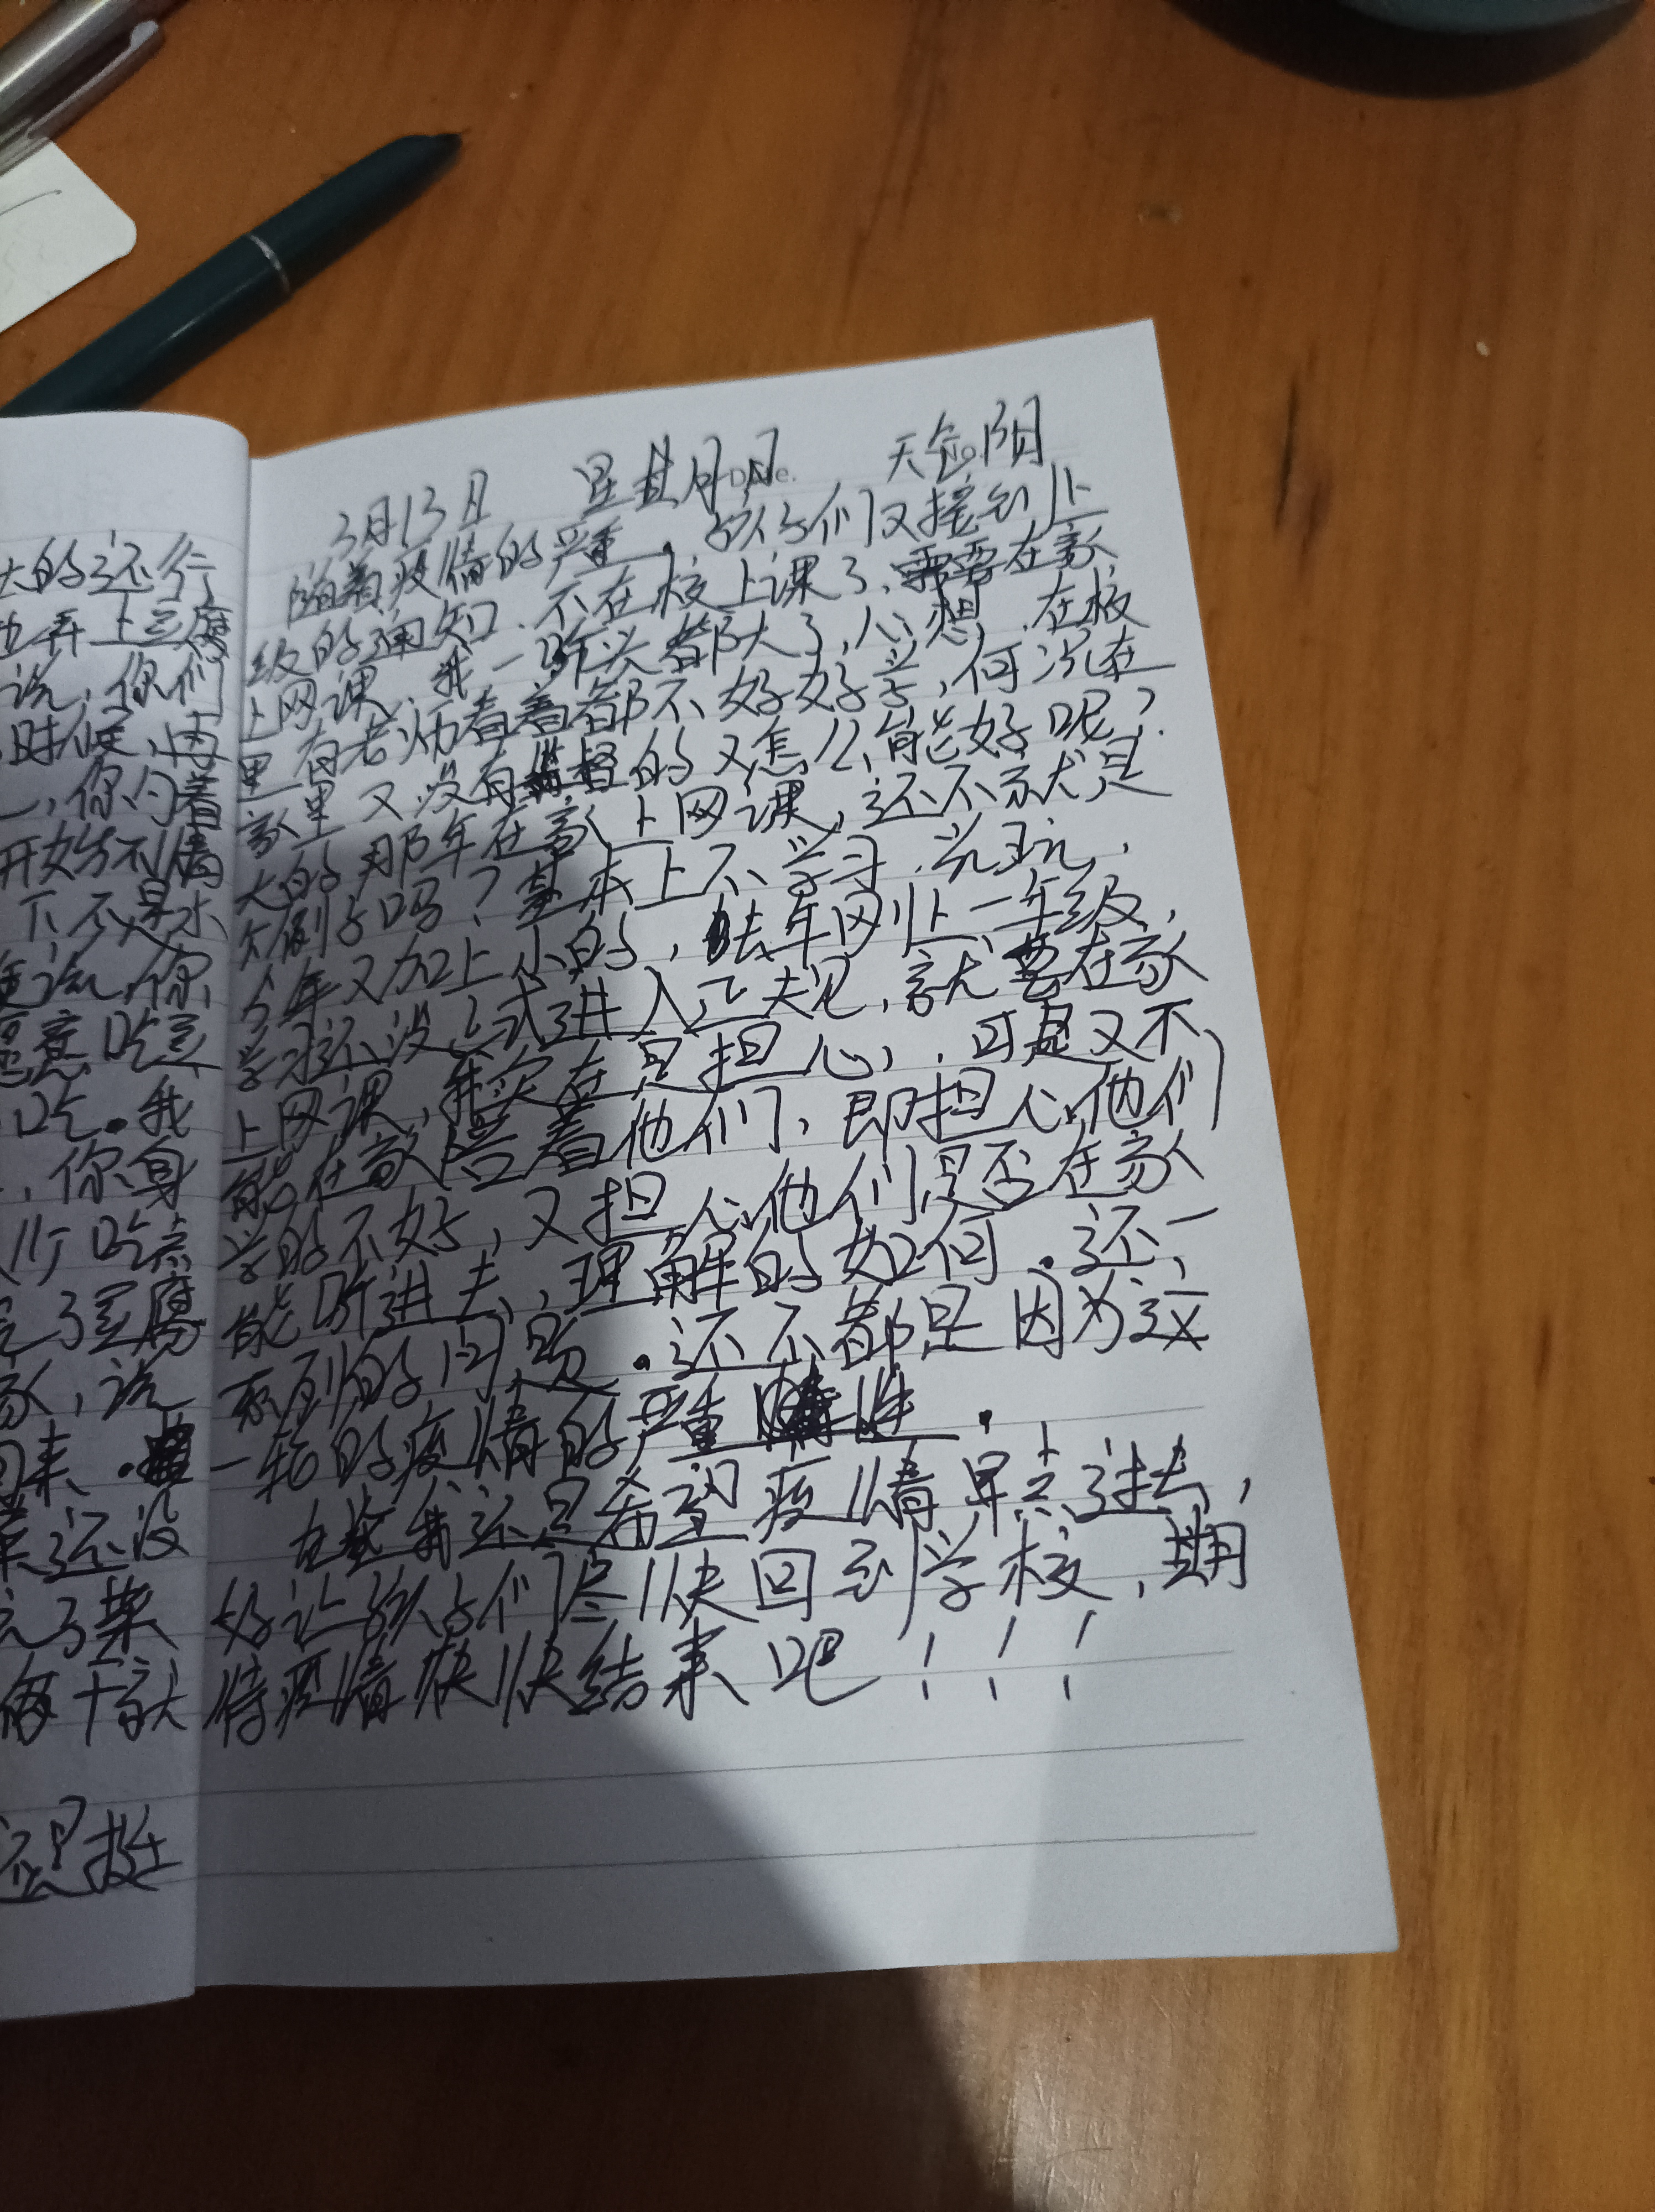 大的还行
也弄上豆腐
说，你们
时候，再
，你们着
开始不情
下，不是水
便说，你
愿意吃豆
吃。我
，你身
行吃点
完了豆腐
家，说
回来。
菜还没
完了菜
每个就
还是挺
3月13日 星期日 天气阴
Date.
随着疫情的严重，孩子们又接到上
级的通知，不在校上课了，需要在家
上网课，我一听头都大了，心想，在校
里有老师看着都不好好学，何况在
家里又没有监督的又怎么能好呢？
大的那年在家上网课，还不就是
个例子吗？基本上不学习，光玩，
今年又加上小的，去年刚上一年级，
学习还没正式进入正规，就要在家
上网课，我实在是担心，可是又不
能在家陪着他们，即担心他们
学的不好，又担心他们是否在家
能听进去，理解的如何。还一
系列的问题。还不都是因为这
一轮的疫情的严重性。
在这我还是希望疫情早点过去，
好让孩子们尽快回到学校，期
待疫情快快结束吧！！！